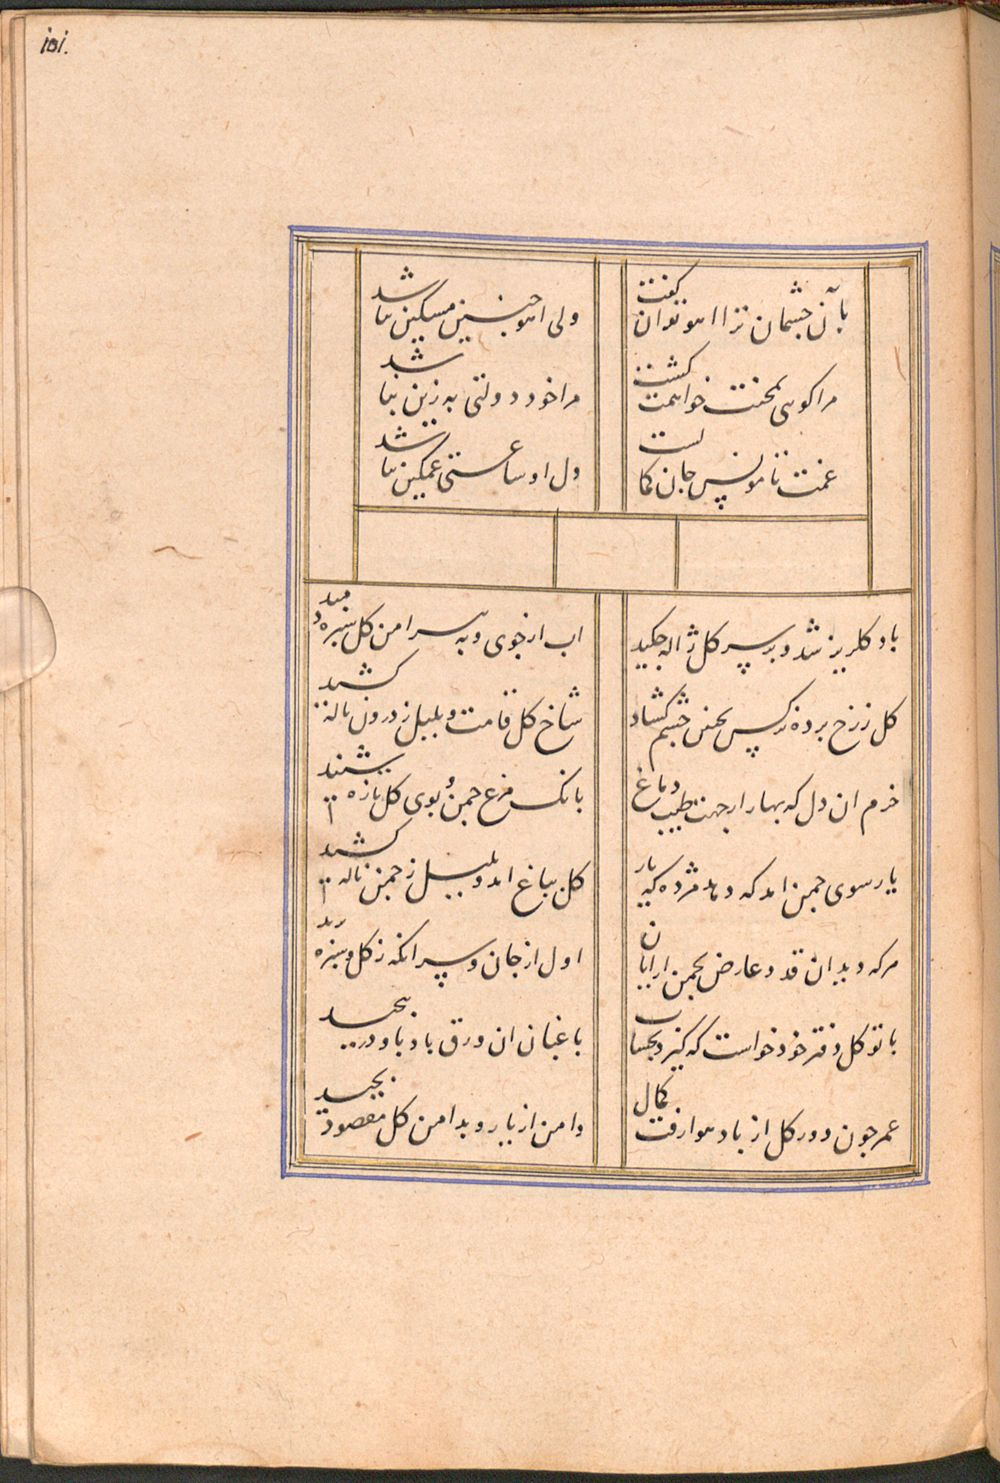 101.
بآن چشمان ترا اهو توان گفت
ولی اهو چنین مسکین نباشد
مرا کوسی بمحنت خواهمت کشت
مرا خود دولتی به زین نباشد
غمت تا مونس جان کمالست
دل او ساعتی غمکین نباشد
باد کلریز شد و بر سر کل ژاله چکید
اب از جوی و به سرامن کل سبزه دمید
کل ز رخ برده و نرکس بچمن چشم کشاد
شاخ کل قامت و بلبل ز درون ناله کشید
خرم ان دل که بهار از جهت طیب دماغ
بانک مرغ چمن و بوی کل تازه شنید
یار سوی چمن امد که دهد مژده که یار
کل بباغ امد و بلبل ز چمن ناله کشید
هرکه دید ان قد و عارض بچمن ارایان
اول از جان و سر انکه ز کل و سبزه برید
با تو کل دفتر خود خواست که کیرد بحساب
باغبان ان ورق باد باو در پیچید
عمر چون دور کل از باد هوا رفت کمال
دامن از یار و بدامن کل مقصود بچید